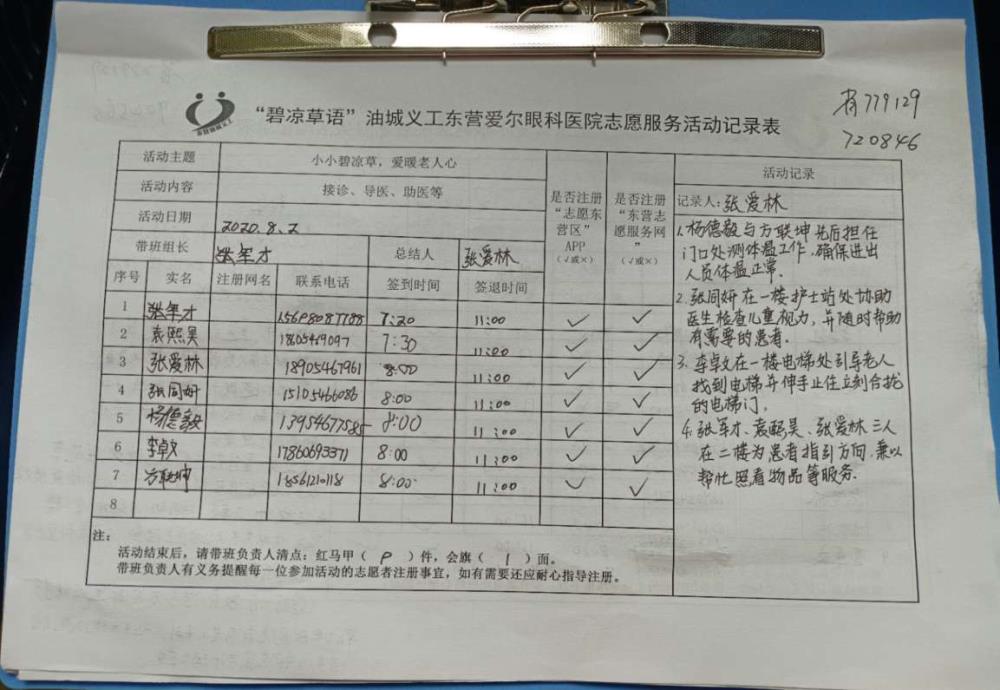 有779129
720846
东营油城义工
“碧凉草语”油城义工东营爱尔眼科医院志愿服务活动记录表
活动主题 小小碧凉草，爱暖老人心
活动内容 接诊、导医、助医等
活动日期 2020.8.2
带班组长 张军才 总结人 张爱林
是否注册“志愿东营区”APP（√或×）
是否注册“东营志愿服务网”（√或×）
序号 实名 注册网名 联系电话 签到时间 签退时间
1 张军才 15698087188 7:20 11:00 ✓ ✓
2 袁熙昊 18605469097 7:30 11:00 ✓ ✓
3 张爱林 18905467961 8:00 11:00 ✓ ✓
4 张同妍 15105466086 8:00 11:00 ✓ ✓
5 杨德毅 13954677585 8:00 11:00 ✓ ✓
6 李卓文 17860693371 8:00 11:00 ✓ ✓
7 方联坤 18561210118 8:00 11:00 ✓ ✓
8
注：
活动结束后，请带班负责人清点：红马甲（ P ）件，会旗（ 1 ）面。
带班负责人有义务提醒每一位参加活动的志愿者注册事宜，如有需要还应耐心指导注册。
活动记录
记录人：张爱林
1.杨德毅与方联坤先后担任
门口处测体温工作，确保进出
人员体温正常.
2.张同妍在一楼护士站处协助
医生检查儿童视力，并随时帮助
有需要的患者.
3.李卓文在一楼电梯处引导老人
找到电梯并伸手止住立刻合拢
的电梯门.
4.张军才、袁熙昊、张爱林三人
在二楼为患者指引方向，兼以
帮忙照看物品等服务.